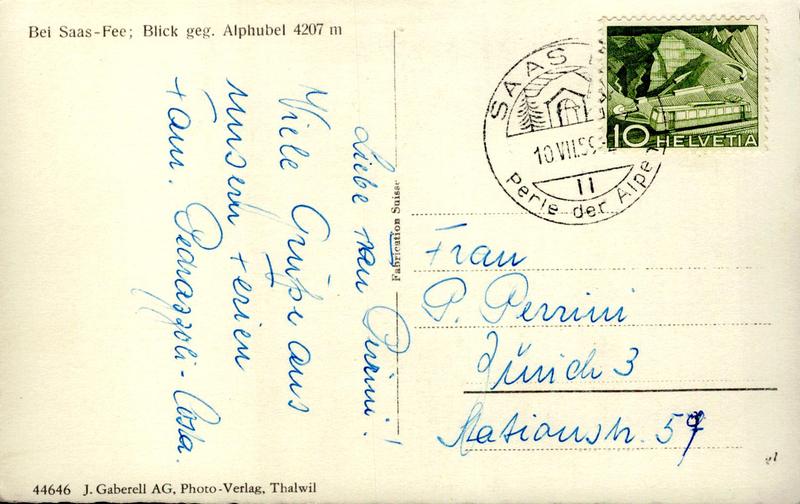 Bei Saas-Fee; Blick geg. Alphubel 4207 m
Liebe Frau Perrini!
Viele Grüße aus
unsern Ferien
Fam. Pedrazzoli-Costa.
Fabrication Suisse
SAAS
10.VII.59
11
Perle der Alpe
10 HELVETIA
Frau
P. Perrini
Zürich 3
Stationstr. 57
44646 J. Gaberell AG, Photo-Verlag, Thalwil